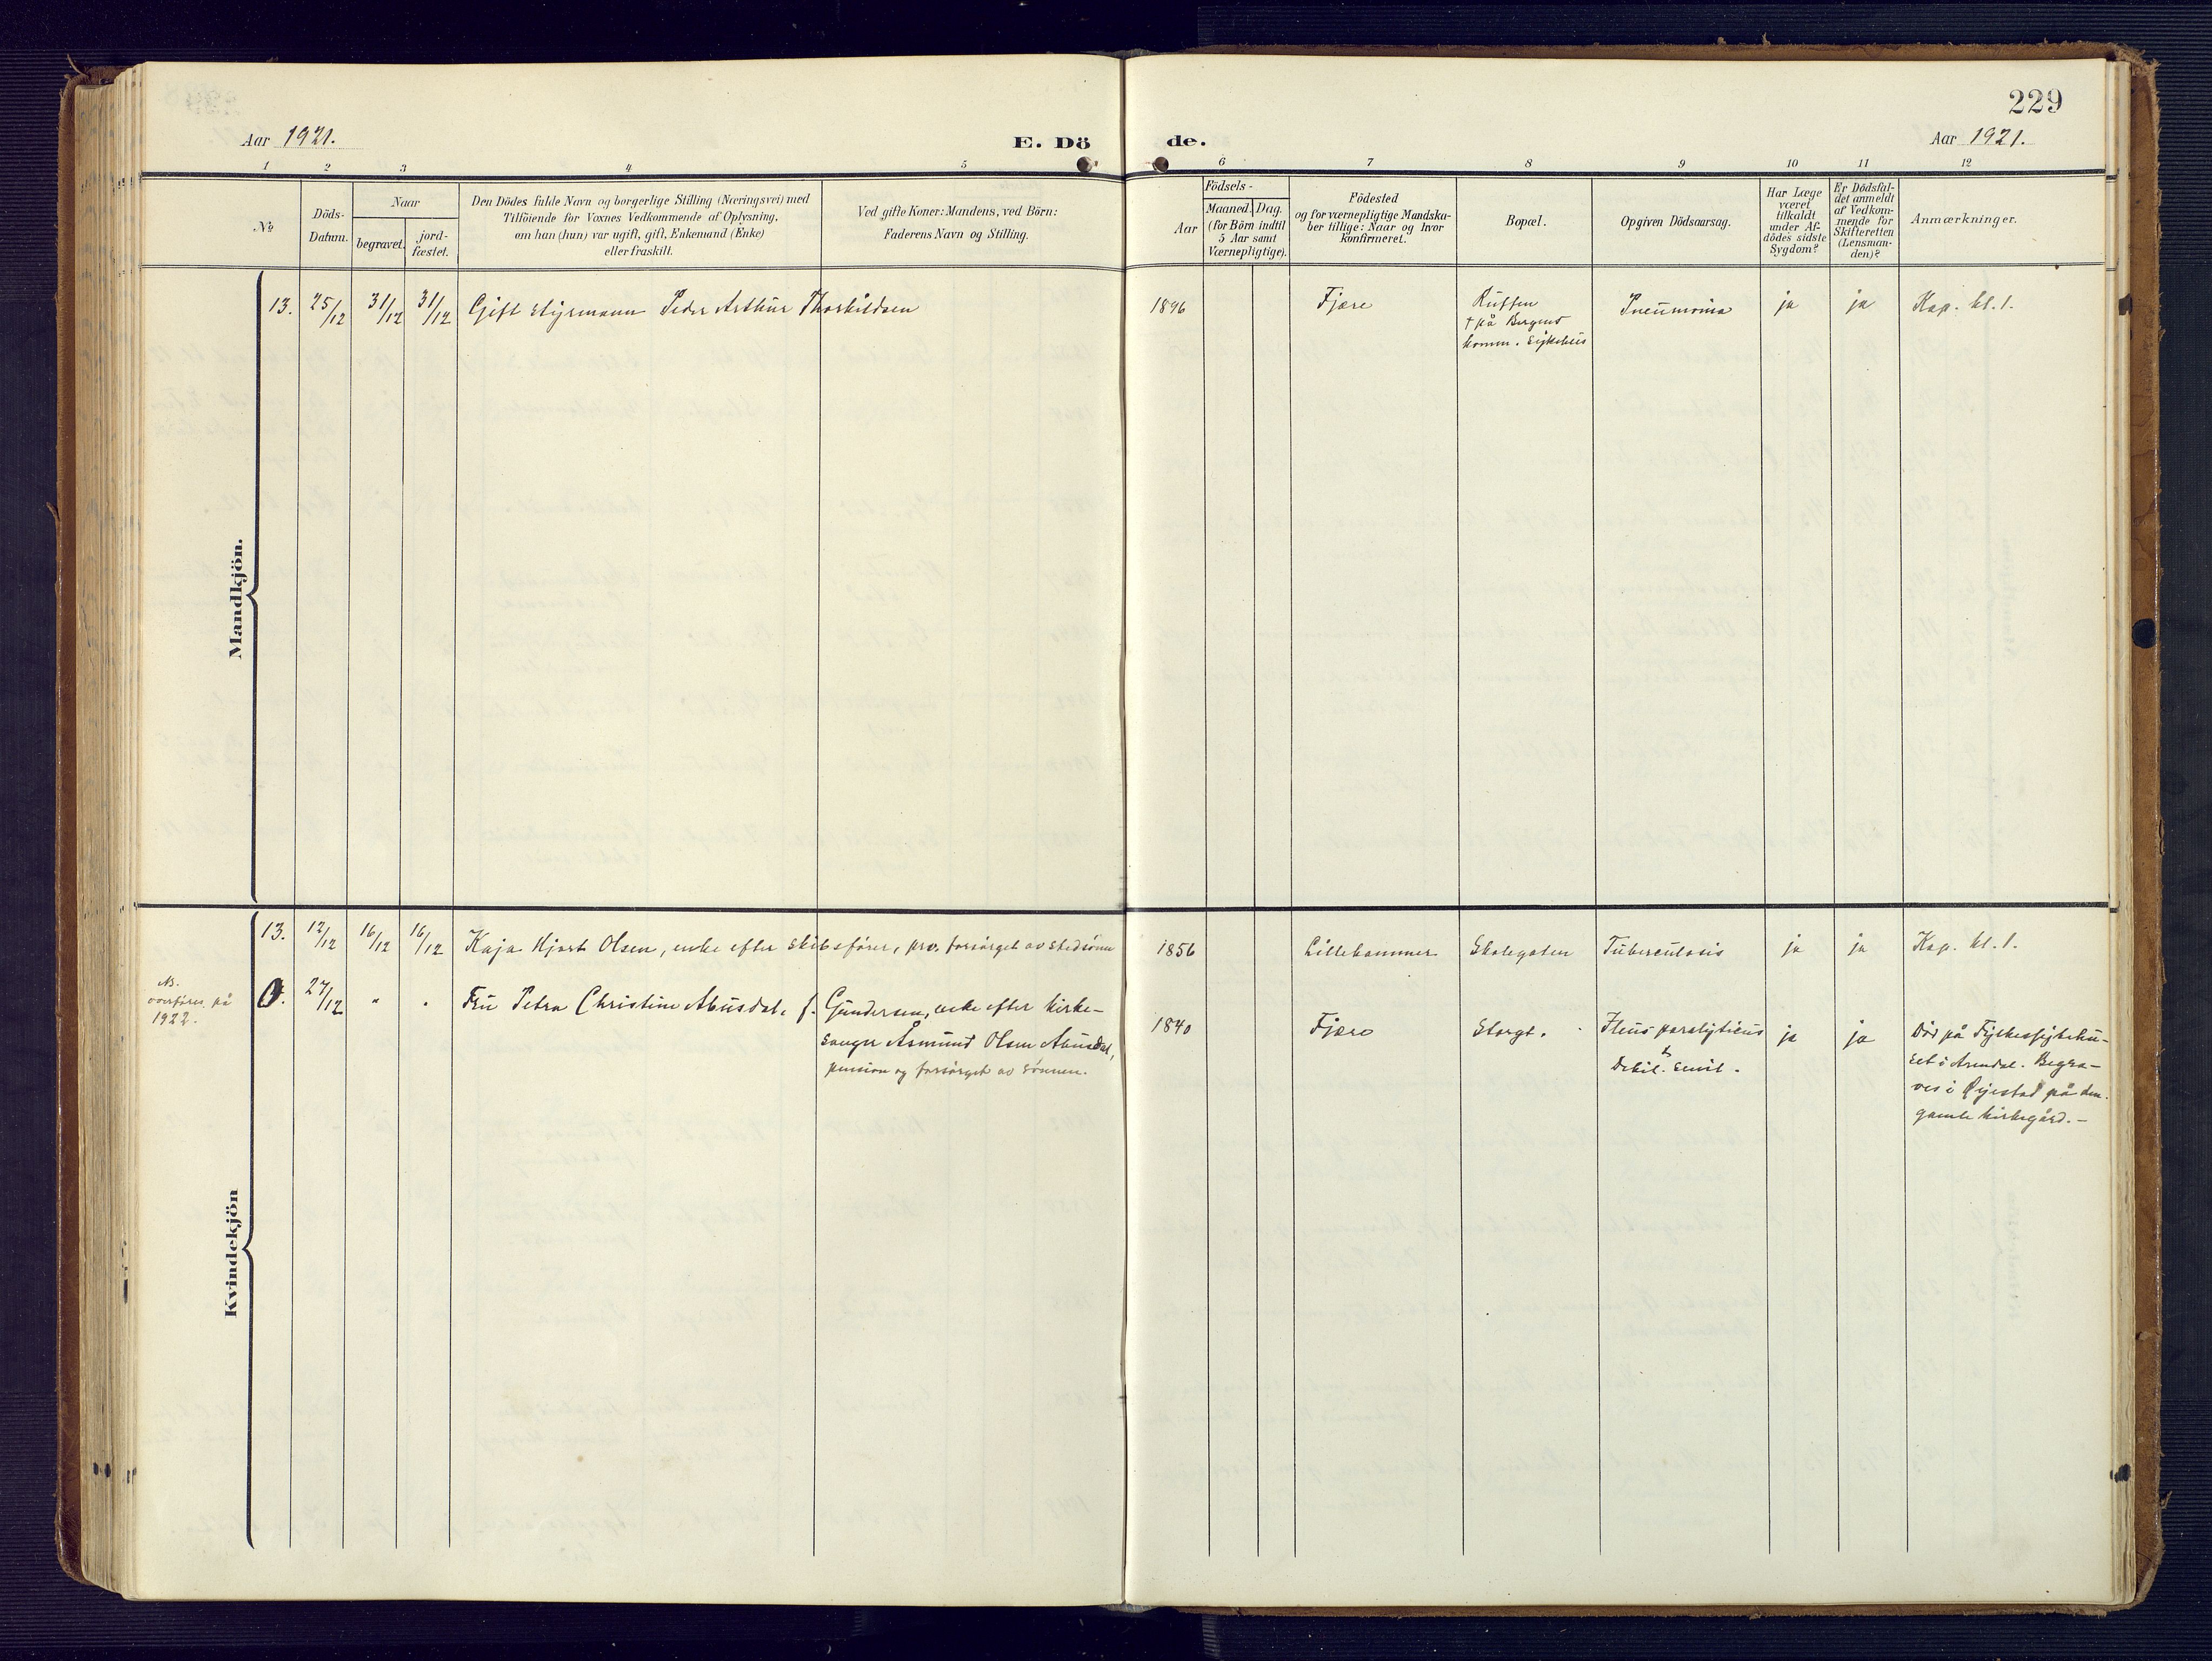 229
Aar 1921.
E. Dö de.
Aar 1921.
1 2 3 4 5 6 7 8 9 10 11 12
№
Döds-
Datum.
Naar
begravet.
jord-
fæstet.
Den Dödes fulde Navn og borgerlige Stilling (Næringsvei) med
Tilföiende for Voxnes Vedkommende af Oplysning.
om han (hun) var ugift, gift, Enkemand (Enke)
eller fraskilt.
Ved gifte Koner: Mandens, ved Börn:
Faderens Navn og Stilling.
Födsels-
Aar
Maaned. Dag.
(for Börn indtil
5 Aar samt
Værnepligtige).
Födested
og for værnepligtige Mandska-
ber tillige: Naar og hvor
konfirmeret.
Bopæl.
Opgiven Dödsaarsag.
Har Læge
været
tilkaldt
under Af-
dödes sidste
Sygdom?
Er Dödsfal-
det anmeldt
af Vedkom-
mende for
Skifteretten
(Lensman-
den)?
Anmærkninger.
Mandkjön.
13. 25/12 31/12 31/12 Gift styrmann Peder Arthur Thorkildsen 1896 Fjære Ruffen Pneumonia ja ja Kap. kl. 1.
† på Bergens
komm. sykehus
Kvindekjön
13. 12/12 16/12 16/12 Kaja Hjort Olsen, enke efter skibsfører, prv. forsørget av stedsønn 1856 Lillehammer Skolegaten Tuberculosis ja ja Kap. kl. 1.
NB.
overføres på
1922.
0. 27/12 " " Fru Petra Christine Abusdal, f. Gundersen, enke efter kirke-
sanger Åsmund Olsen Abusdal,
pension og forsørget av sønnen.
1840 Fjære Storgt. Ileus paralyticus ja ja
&
Debil. senil.
Død på Fylkessykehu-
set i Arendal. Begra-
ves i på den
gamle kirkegård.-